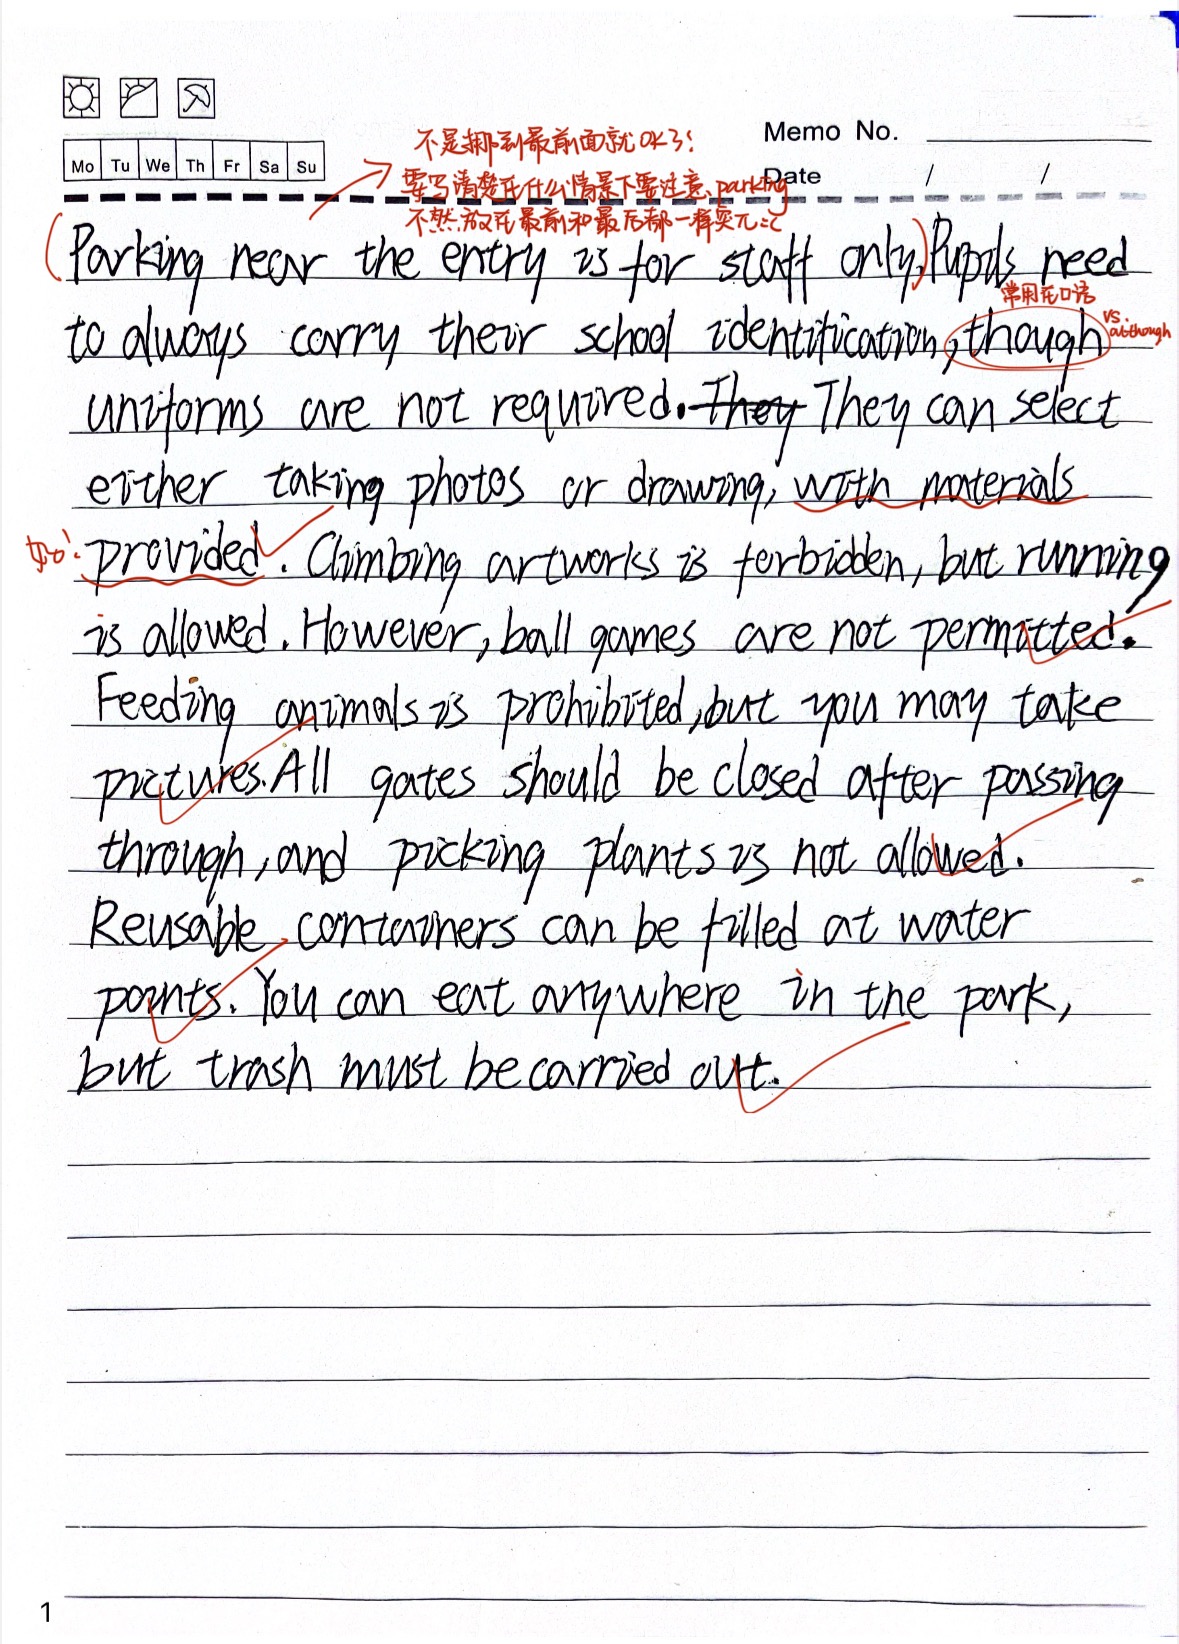 Memo No.
Mo Tu We Th Fr Sa Su
Date / /
不是挪到最前面就OK了!
要写清楚在什么情景下要注意parking
不然放在最前和最后都一样突兀:(
(Parking near the entry is for staff only.) Pupils need
常用在口语
to always carry their school identification, though
vs. although
uniforms are not required. They They can select
either taking photos or drawing, with materials
如:
provided. Climbing artworks is forbidden, but running
is allowed. However, ball games are not permitted.
Feeding animals is prohibited, but you may take
pictures. All gates should be closed after passing
through, and picking plants is not allowed.
Reusable containers can be filled at water
points. You can eat anywhere in the park,
but trash must be carried out.
1